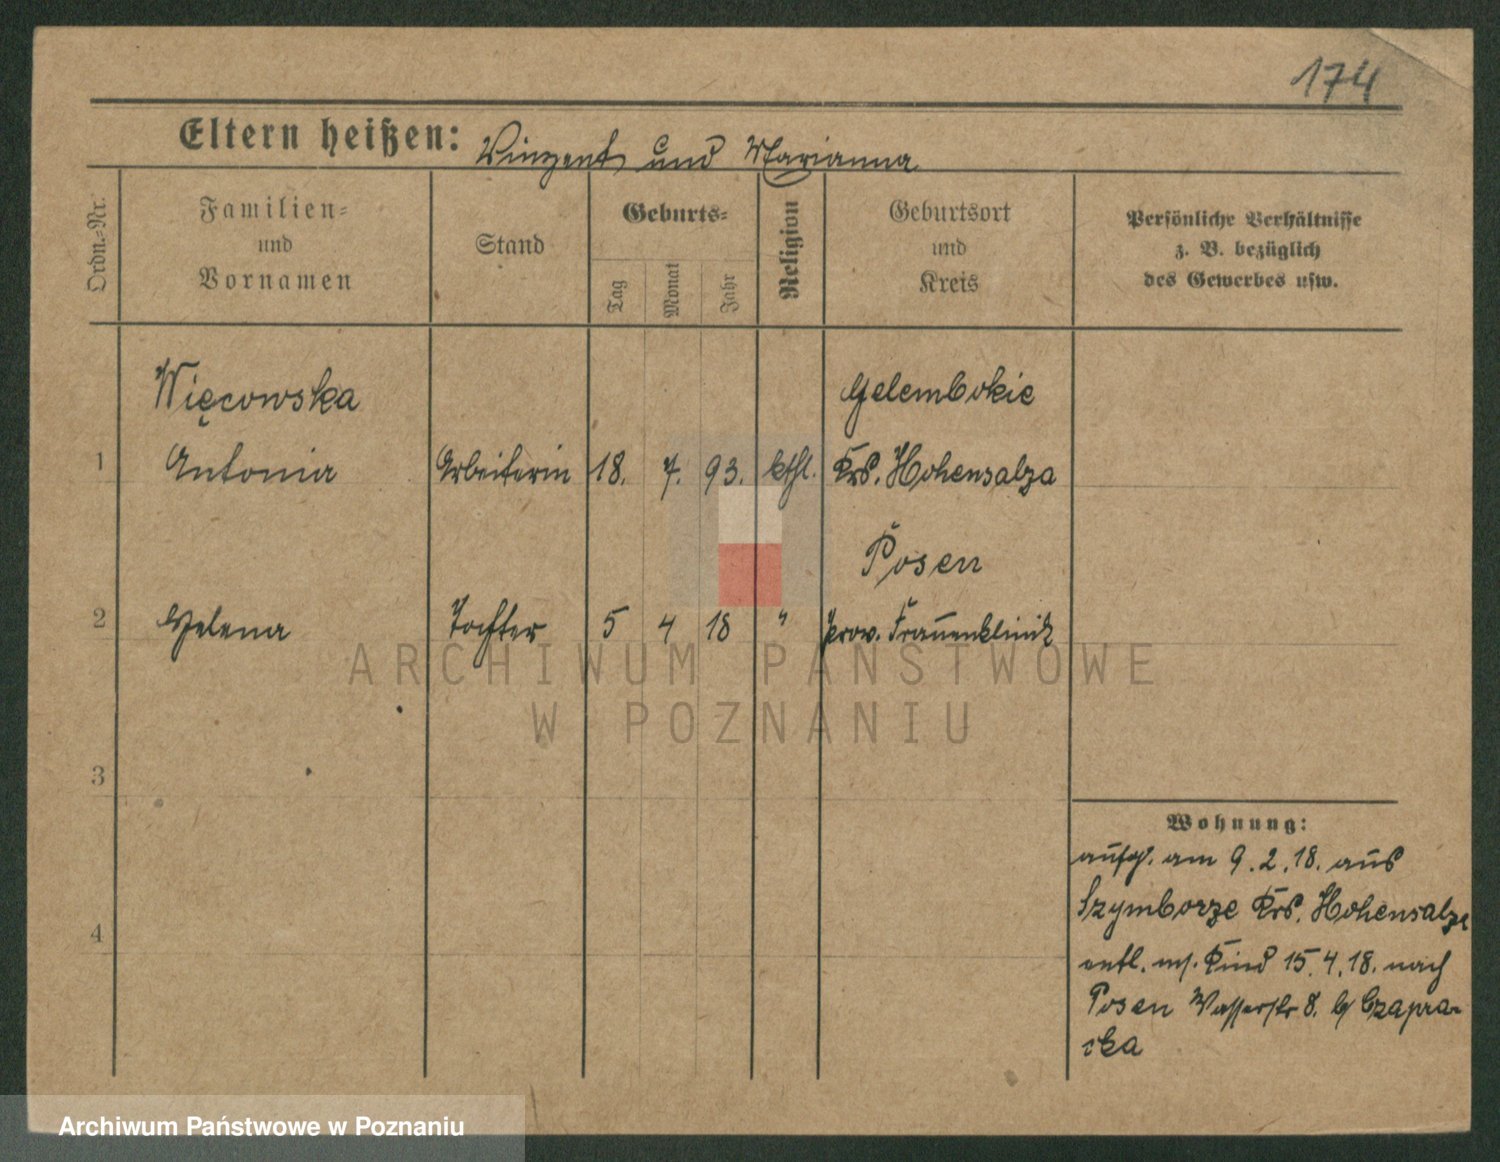 174
Eltern heißen: Vinzent und Marianna
Ordn.-Nr.
Familien-
und
Vornamen
Stand
Geburts-
Tag
Monat
Jahr
Religion
Geburtsort
und
Kreis
Persönliche Verhältnisse
z. B. bezüglich
des Gewerbes usw.
Więcowska Gelembokie
1 Antonia Arbeiterin 18. 7. 93. kthl. Krs. Hohensalza
Posen
2 Helena Tochter 5 4 18 " prov. Frauenklinik
3
4
Wohnung:
aufg. am 9.2.18. aus
Szymborze Krs. Hohensalza
entl. m. Kind 15.4.18. nach
Posen Wasserstr 8. b/ Czapra-
cka
ARCHIWUM PAŃSTWOWE
W POZNANIU
Archiwum Państwowe w Poznaniu